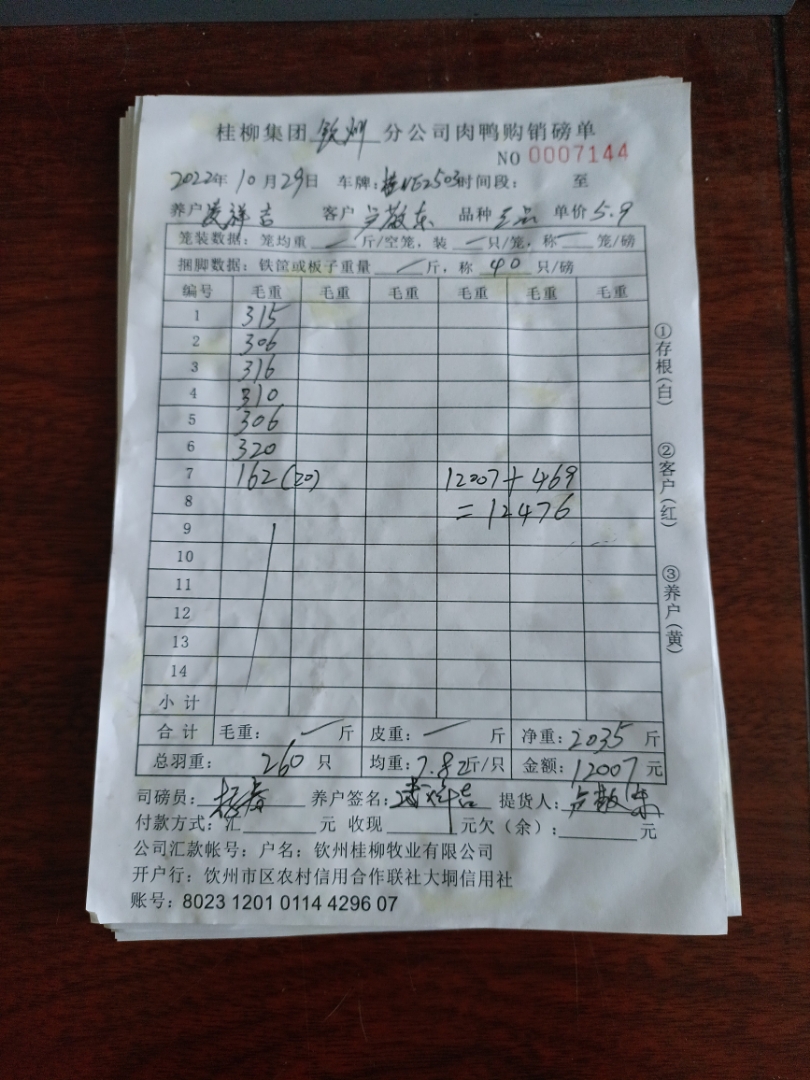 桂柳集团 钦州 分公司肉鸭购销磅单
NO 0007144
2022年10月29日 车牌:桂NE2503 时间段: 至
养户 凌祥吉 客户 卢敬东 品种 三品 单价 5.9
笼装数据: 笼均重 / 斤/空笼, 装 / 只/笼, 称 / 笼/磅
捆脚数据: 铁筐或板子重量 / 斤, 称 40 只/磅
编号 毛重 毛重 毛重 毛重 毛重 毛重
1 315
2 306
3 316
4 310
5 306
6 320
7 162(20) 12007+469
8 =12476
9
10
11
12
13
14
小 计
合 计 毛重: / 斤 皮重: / 斤 净重: 2035 斤
总羽重: 260 只 均重: 7.82斤/只 金额: 12007元
司磅员: 养户签名: 凌祥吉 提货人: 卢敬东
付款方式: 汇 元 收现 元欠(余): 元
公司汇款帐号: 户名: 钦州桂柳牧业有限公司
开户行: 钦州市区农村信用合作联社大垌信用社
账号: 8023 1201 0114 4296 07
①存根(白)
②客户(红)
③养户(黄)